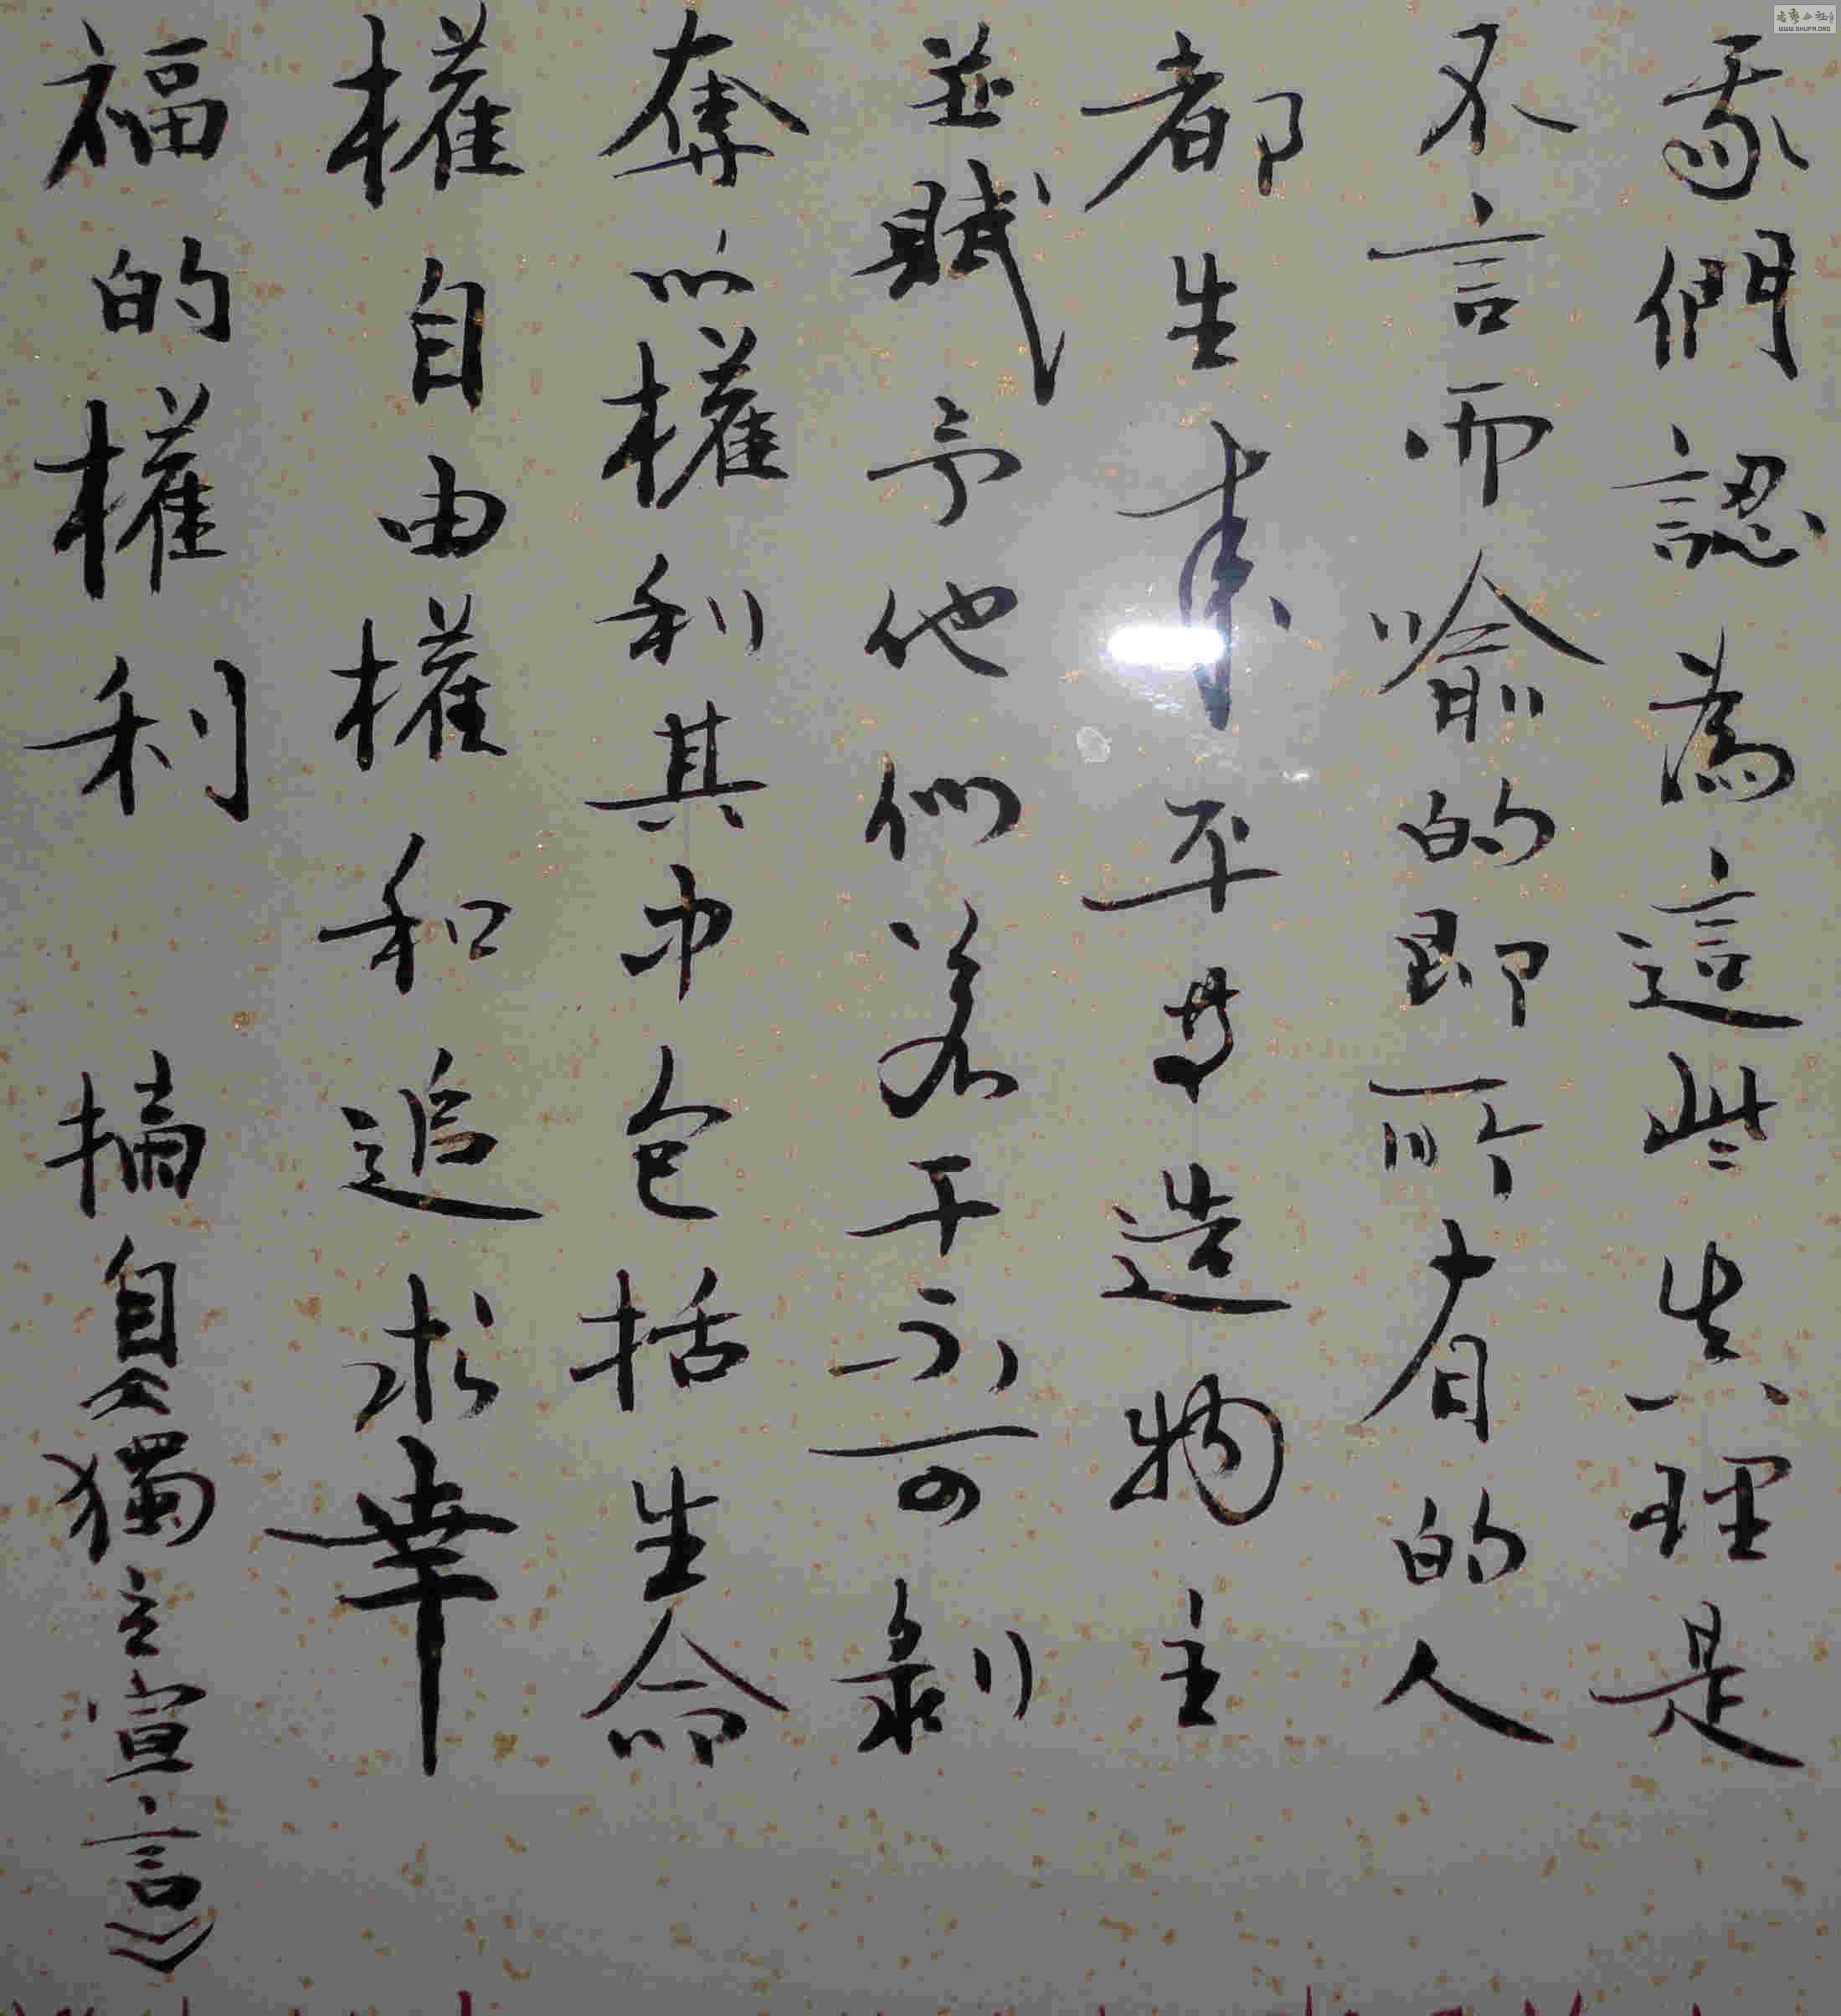 我們認為這些真理是
不言而喻的即所有的人
都生來平等造物主
並賦予他們若干不可剝
奪的權利其中包括生命
權自由權和追求幸
福的權利 摘自《獨立宣言》
WWW.SHUFA.ORG